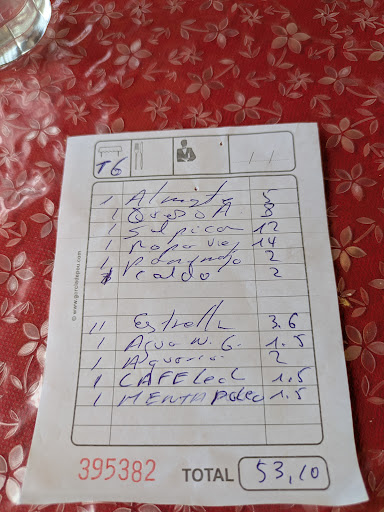 T6
1 Almejas 5
1 Queso A. 8
1 Salpicon 12
1 Ropa viej 14
1 2
1 Caldo 2
11 Estrella 3.6
1 Agua N. G. 1.5
1 Aquarius 2
1 CAFE Lech 1.5
1 MENTA Poleo 1.5
© www.garciadepou.com
395382 TOTAL 53,10